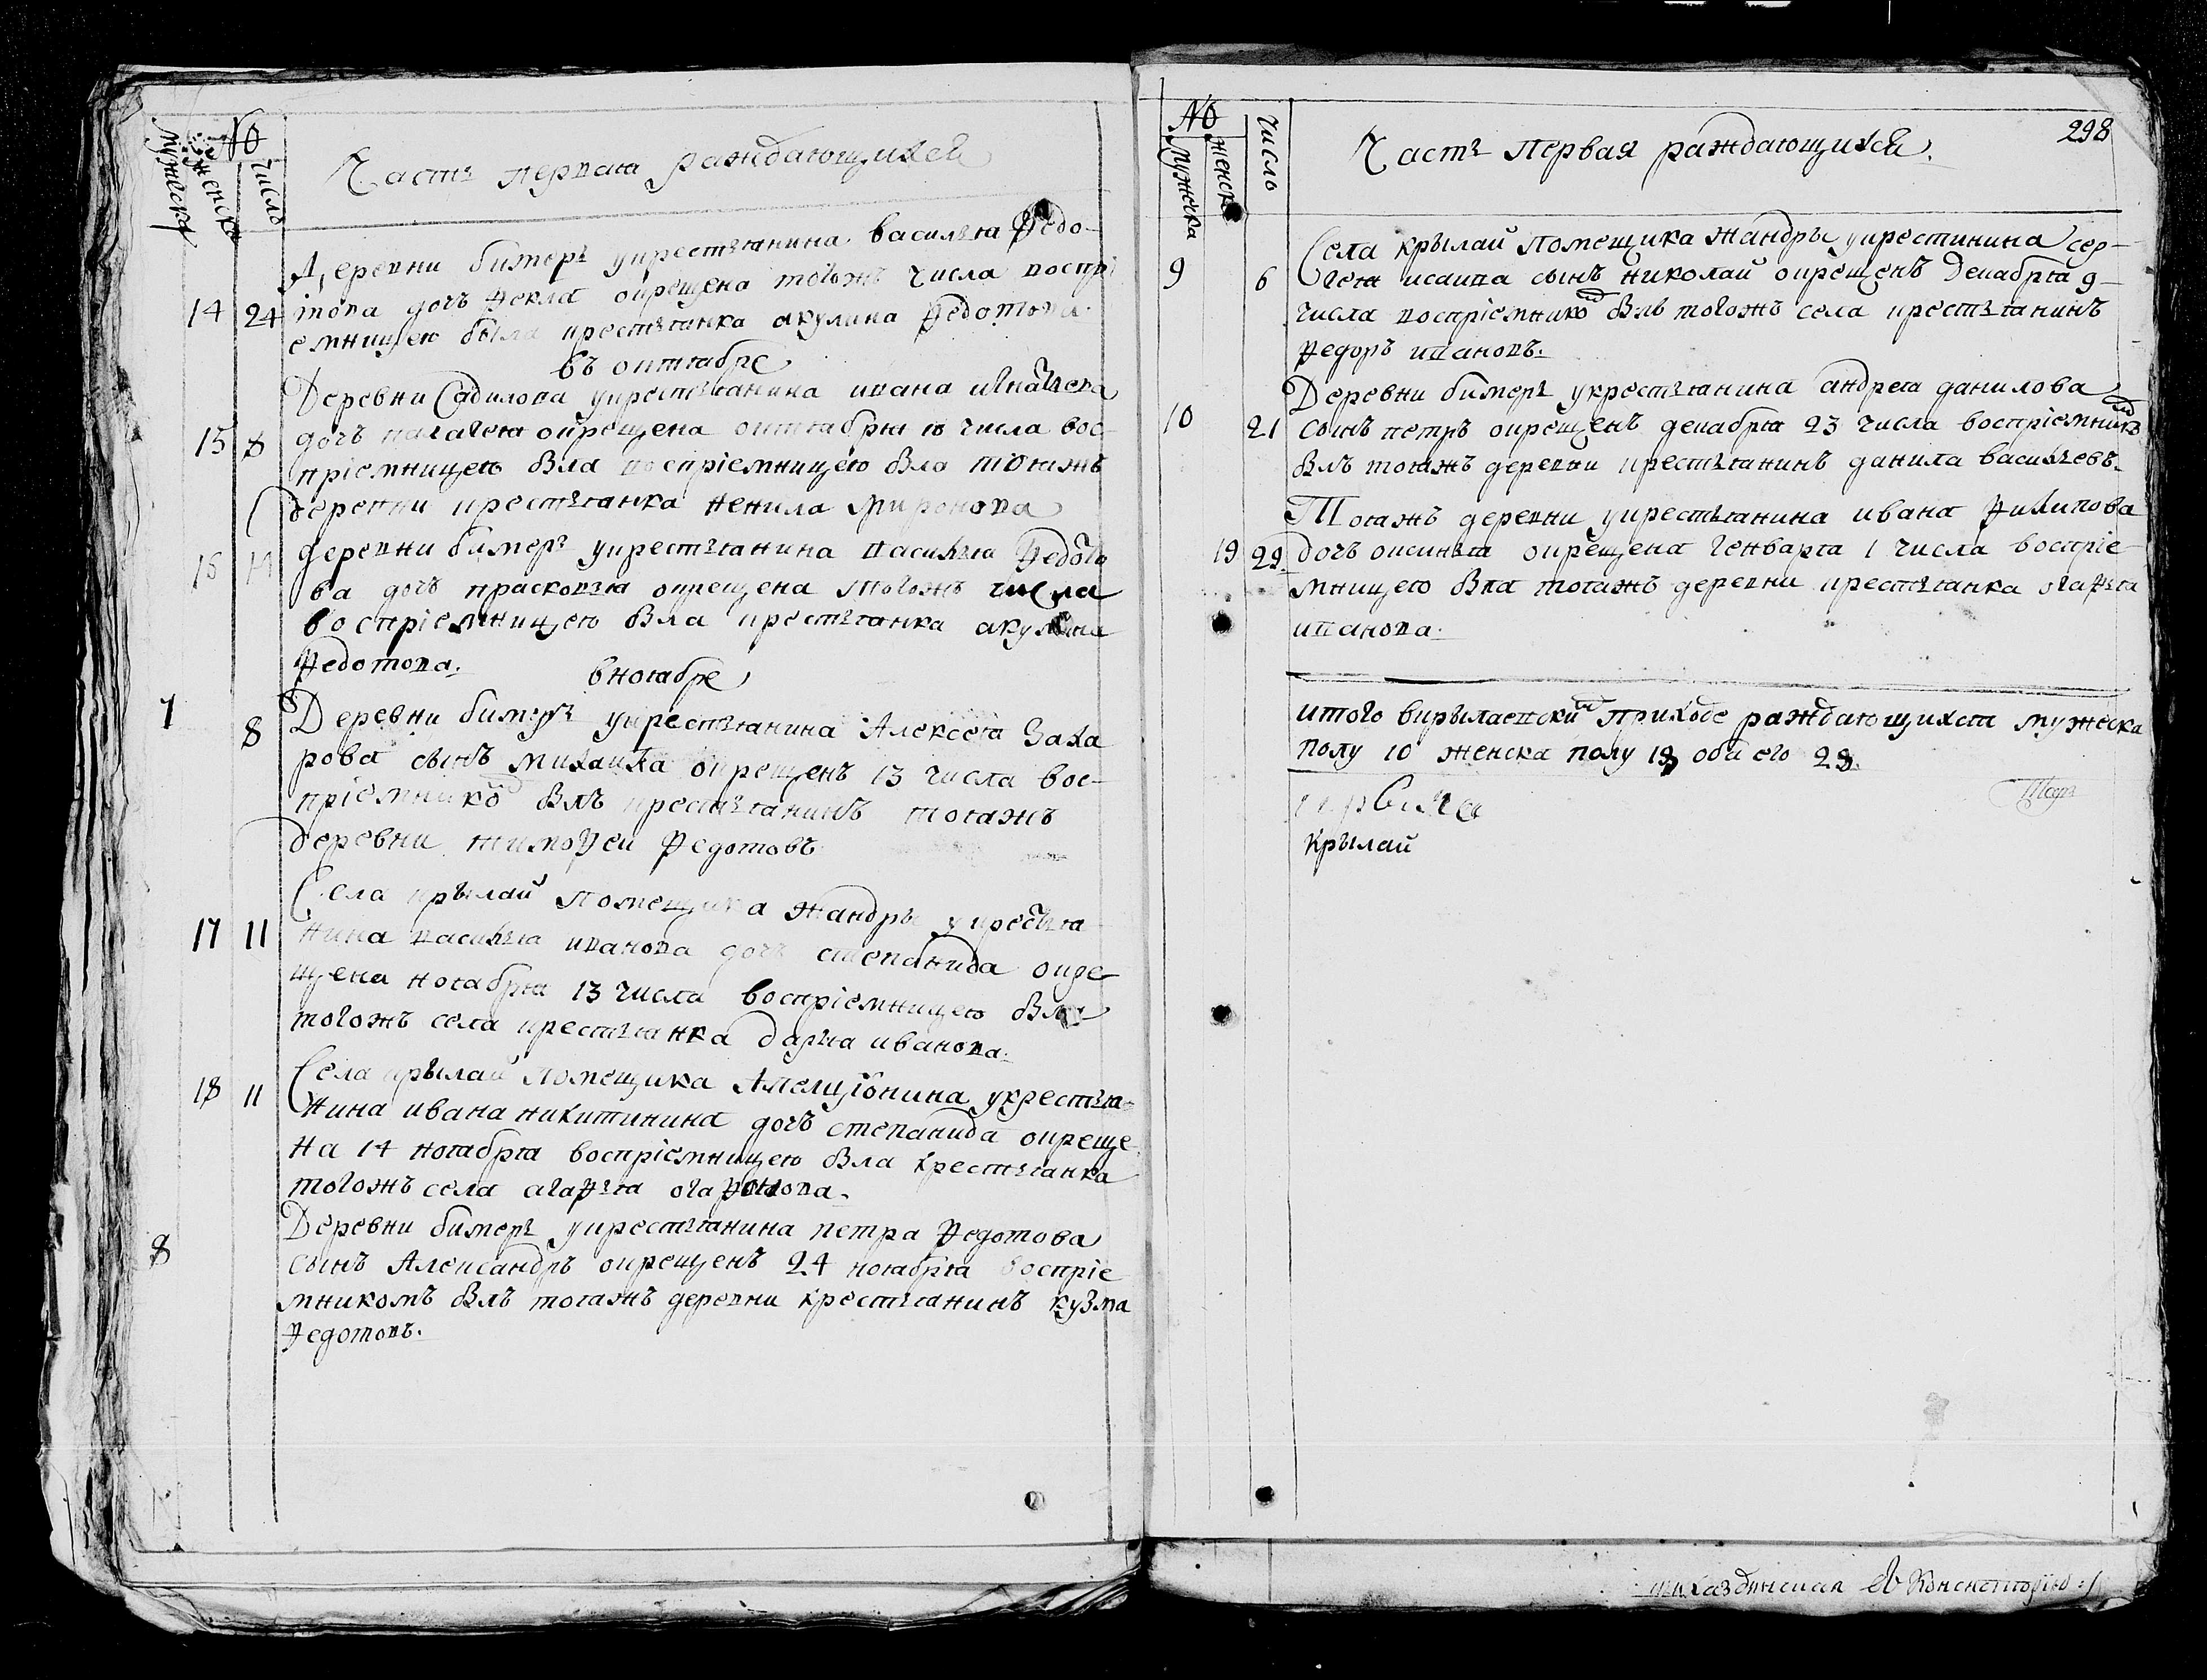 №
мужеска
женска
число
Часть первая раждающихся
Деревни бимерь укрестьянина василья Ѳедо-
14 24 това дочь Ѳекла окрещена тогожъ числа воспрі
емницею была крестьянка акулина Ѳедотова.
въ октябре
Деревни Садилова укрестьянина ивана игнатьева
15 8 дочь палагея окрещена октября 10 числа вос-
пріемницею бла воспріемницею бла тояжъ
деревни крестьянка ненила миронова
16 14 деревни бимерь укрестьянина василья Ѳедото
ва дочь прасковья окрещена тогожъ числа
воспріемницею бла крестьянка акулина
Ѳедотова.
вноябре
7 8 Деревни бимерь укрестьянина Алексея Заха
рова сынъ михаила окрещенъ 13 числа вос-
пріемнико блъ крестьянинъ тояжъ
деревни тимоѲеи Ѳедотовъ
Села крылай помещика жандры укресья
17 11 нина василья иванова дочь степанида окре
щена ноября 13 числа воспріемницею бла
тогожъ села крестьянка дарья иванова.
18 11 Села крылай помещика укрестья-
нина ивана никитинина дочь степанида окреще
на 14 ноября воспріемницею бла крестьянка
тогожъ села агаѲья
8 Деревни бимерь укрестьянина петра Ѳедотова
сынъ Александръ окрещенъ 24 ноября воспріе
мникомъ блъ тояжъ деревни крестьянинъ кузма
Ѳедотовъ.
298
№
мужеска
женска
число
Часть первая раждающихся.
Села крылай помещика жандры укрестинина сер-
9 6 гея исаива сынъ николай окрещенъ декабря 9-
числа воспріемнико блъ тогожъ села крестьянинъ
Ѳедоръ ивановъ.
Деревни бимерь укрестьянина андрея данилова
10 21 сынъ петръ окрещенъ декабря 23 числа воспріемникъ
блъ тояжъ деревни крестьянинъ данила васильевъ.
Тояжъ деревни укрестьянина ивана Ѳилипова
19 29. дочь оксинья окрещена генваря 1 числа воспріе
мницею бла тояжъ деревни крестьянка огаѲья
иванова.
итого вкрылаевски приходе раждающихся мужеска
полу 10 женска полу 19, обаего 29.
крылай